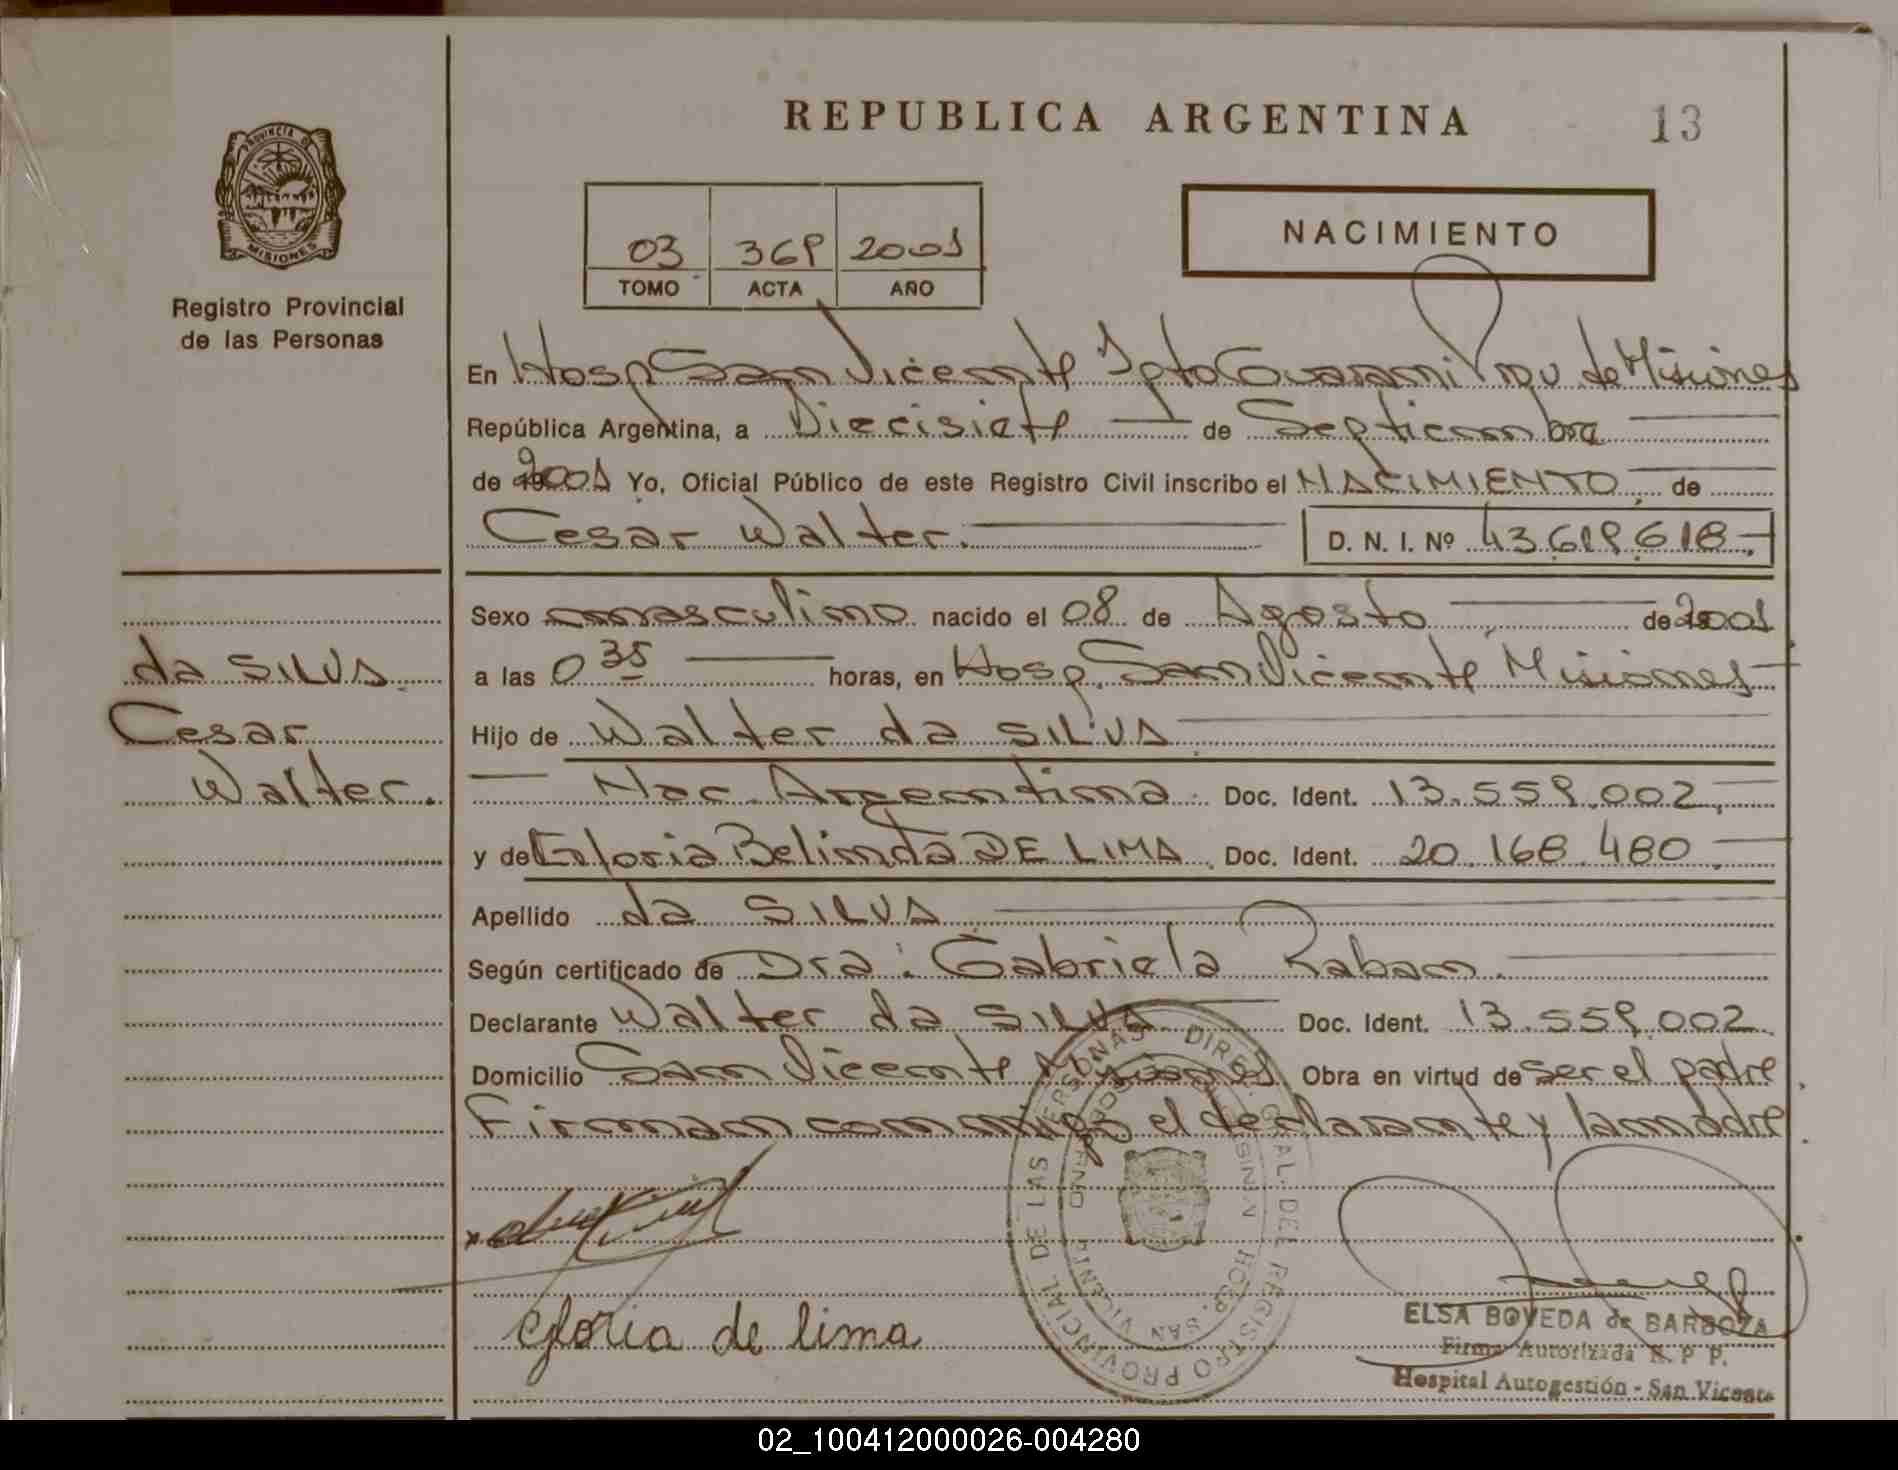 REPUBLICA ARGENTINA
13
PROVINCIA DE MISIONES
Registro Provincial
de las Personas
03 369 2001
TOMO ACTA AÑO
NACIMIENTO
En Hosp San Vicente Dpto Guarani Prov de Misiones
República Argentina, a Diecisiete de Septiembre
de 2001 Yo, Oficial Público de este Registro Civil inscribo el NACIMIENTO, de
Cesar Walter. D. N. I. Nº 43.619.618
Sexo masculino nacido el 08 de Agosto de 2001
a las 0 35 horas, en Hosp. San Vicente Misiones
Hijo de Walter da SILVA
Nac. Argentina. Doc. Ident. 13.559.002,
y de Gloria Belinda DE LIMA, Doc. Ident. 20.168.480.
Apellido da SILVA
Según certificado de Dra: Gabriela Raban.
Declarante Walter da SILVA Doc. Ident. 13.559.002
Domicilio San Vicente Misiones Obra en virtud de ser el padre
Firman conmigo el declarante y la madre
da SILVA
Cesar
Walter.
Gloria de lima
REGISTRO PROVINCIAL DE LAS PERSONAS
HOSP. SAN VICENTE
ELSA BOVEDA de BARBOZA
Firma Autorizada R. P. P.
Hospital Autogestión - San Vicente
02_100412000026-004280